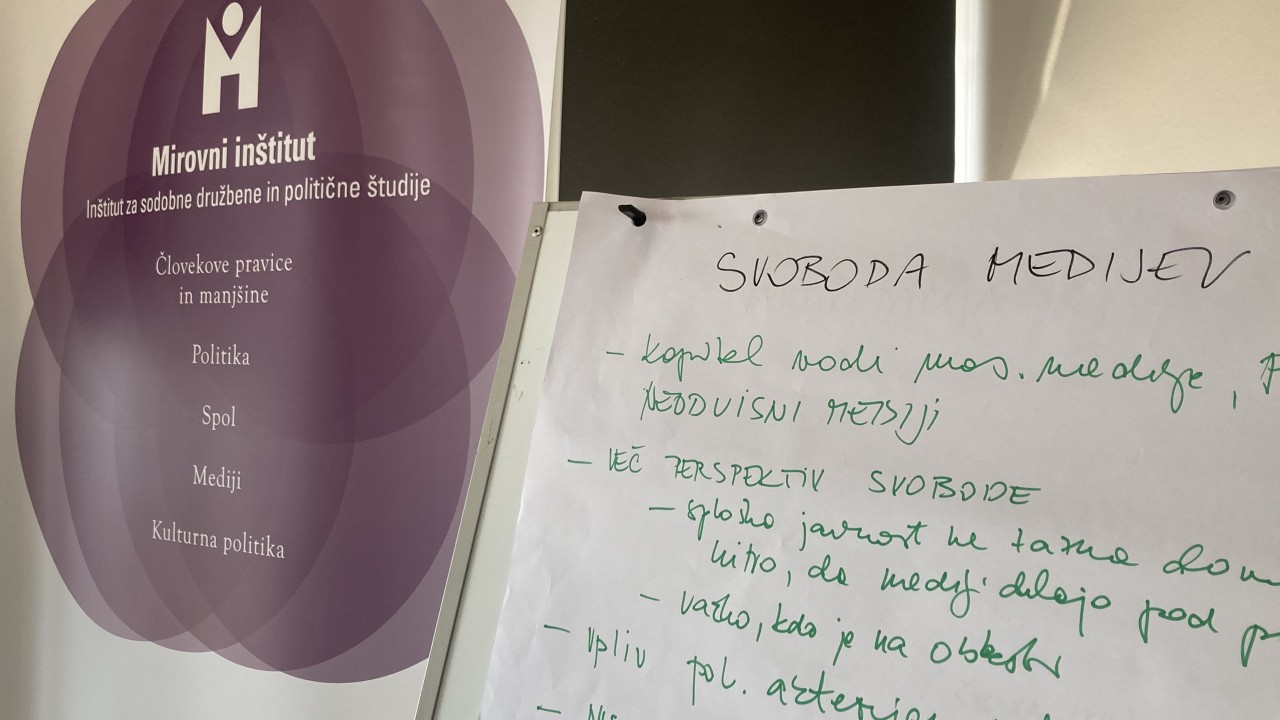 Mirovni inštitut
Inštitut za sodobne družbene in politične študije
Človekove pravice
in manjšine
Politika
Spol
Mediji
Kulturna politika
SVOBODA MEDIJEV
- kapital vodi mas. medije,
NEODVISNI MEDIJI
- VEČ PERSPEKTIV SVOBODE
- splošno javnost ne zazna
hitro, da mediji delajo pod
- važno, kdo je na oblasti
- vpliv pol.
-